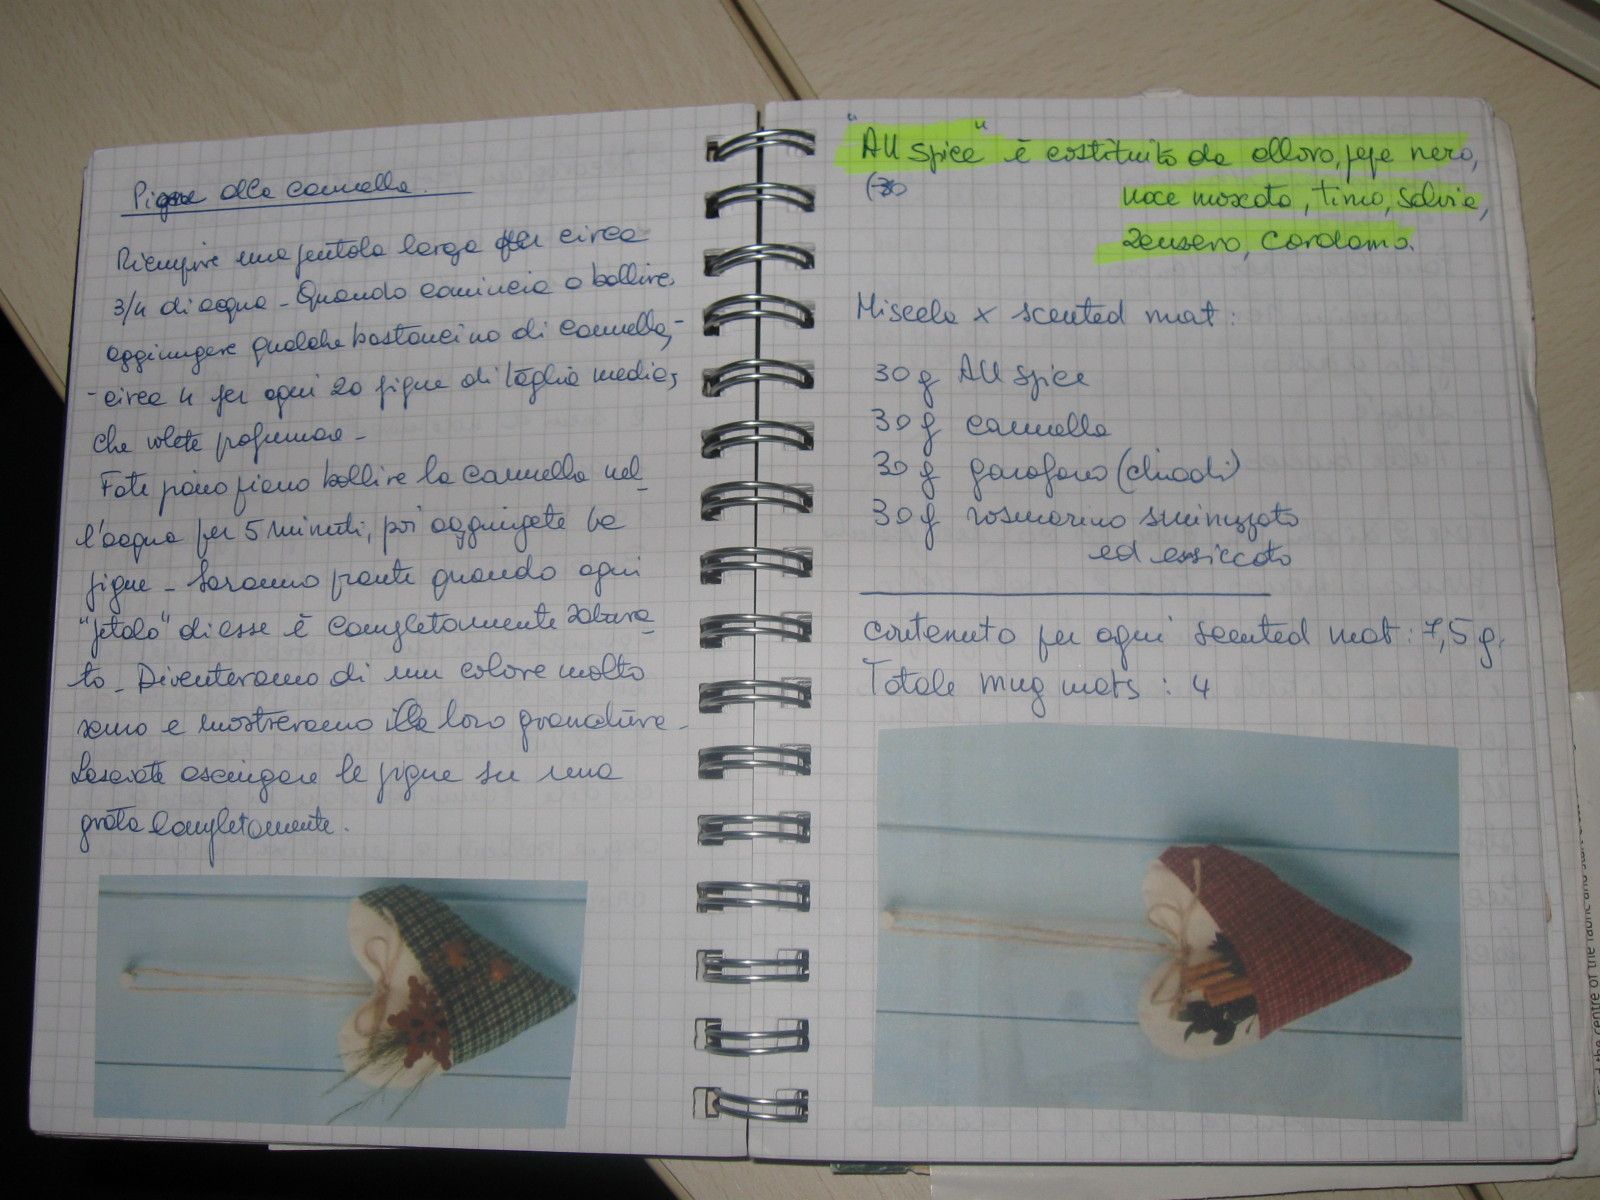 Pigne alla cannella.
Riempire una pentola larga per circa
3/4 di acqua - Quando comincia a bollire,
aggiungere qualche bastoncino di cannella,-
- circa 4 per ogni 20 pigne di taglia media,
che volete profumare -
Fate piano piano bollire la cannella nel_
l'acqua per 5 minuti, poi aggiungete le
pigne - Saranno pronte quando ogni
"petalo" di esse è completamente satura_
to - Diventeranno di un colore molto
scuro e mostreranno le loro granature -
Lasciate asciugare le pigne su una
grata completamente.
"All Spice" è costituito da alloro, pepe nero,
noce moscata, timo, salvia,
zenzero, cardamomo.
Miscela x scented mat:
30 g All Spice
30 g cannella
30 g garofano (chiodi)
30 g rosmarino sminuzzato
ed essiccato
contenuto per ogni scented mat: 7,5 g.
Totale mug mats : 4
the centre of the fabric and start